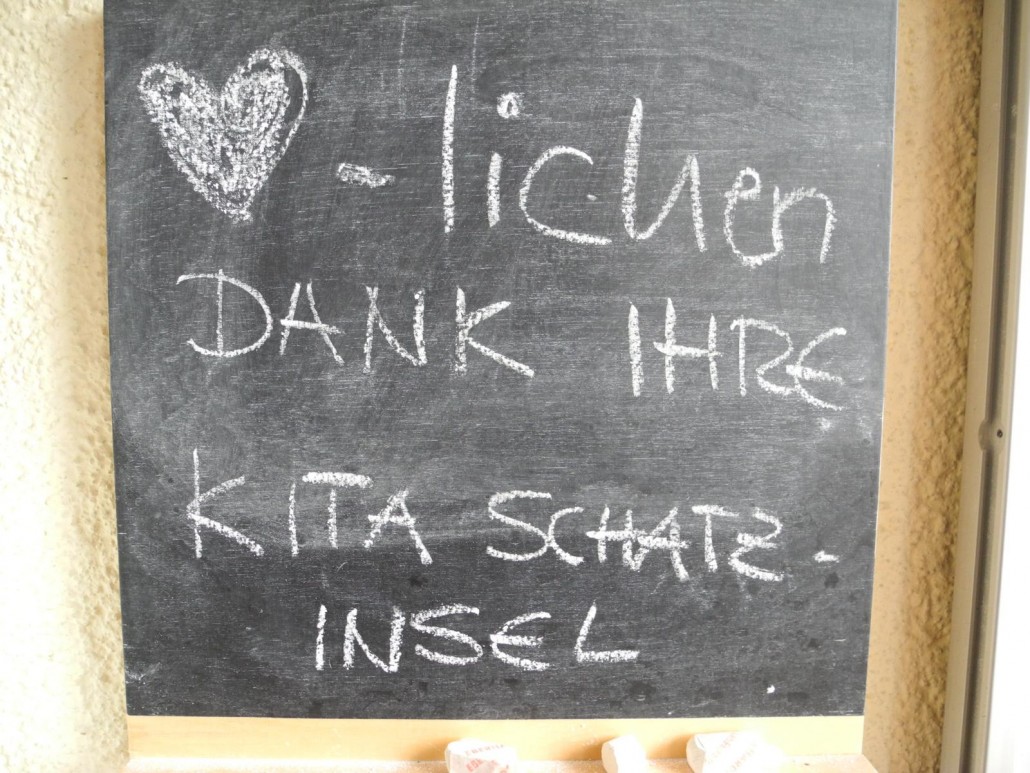 ♥-lichen
DANK IHRE
KITA SCHATZ-
INSEL